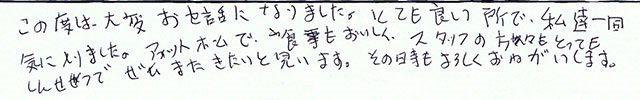 この度は大変お世話になりました。とても良い所で、私達一同
気に入りました。アットホームで、お食事もおいしく、スタッフの方々もとっても
しんせつでぜひまたきたいと思います。その日もよろしくおねがいします。